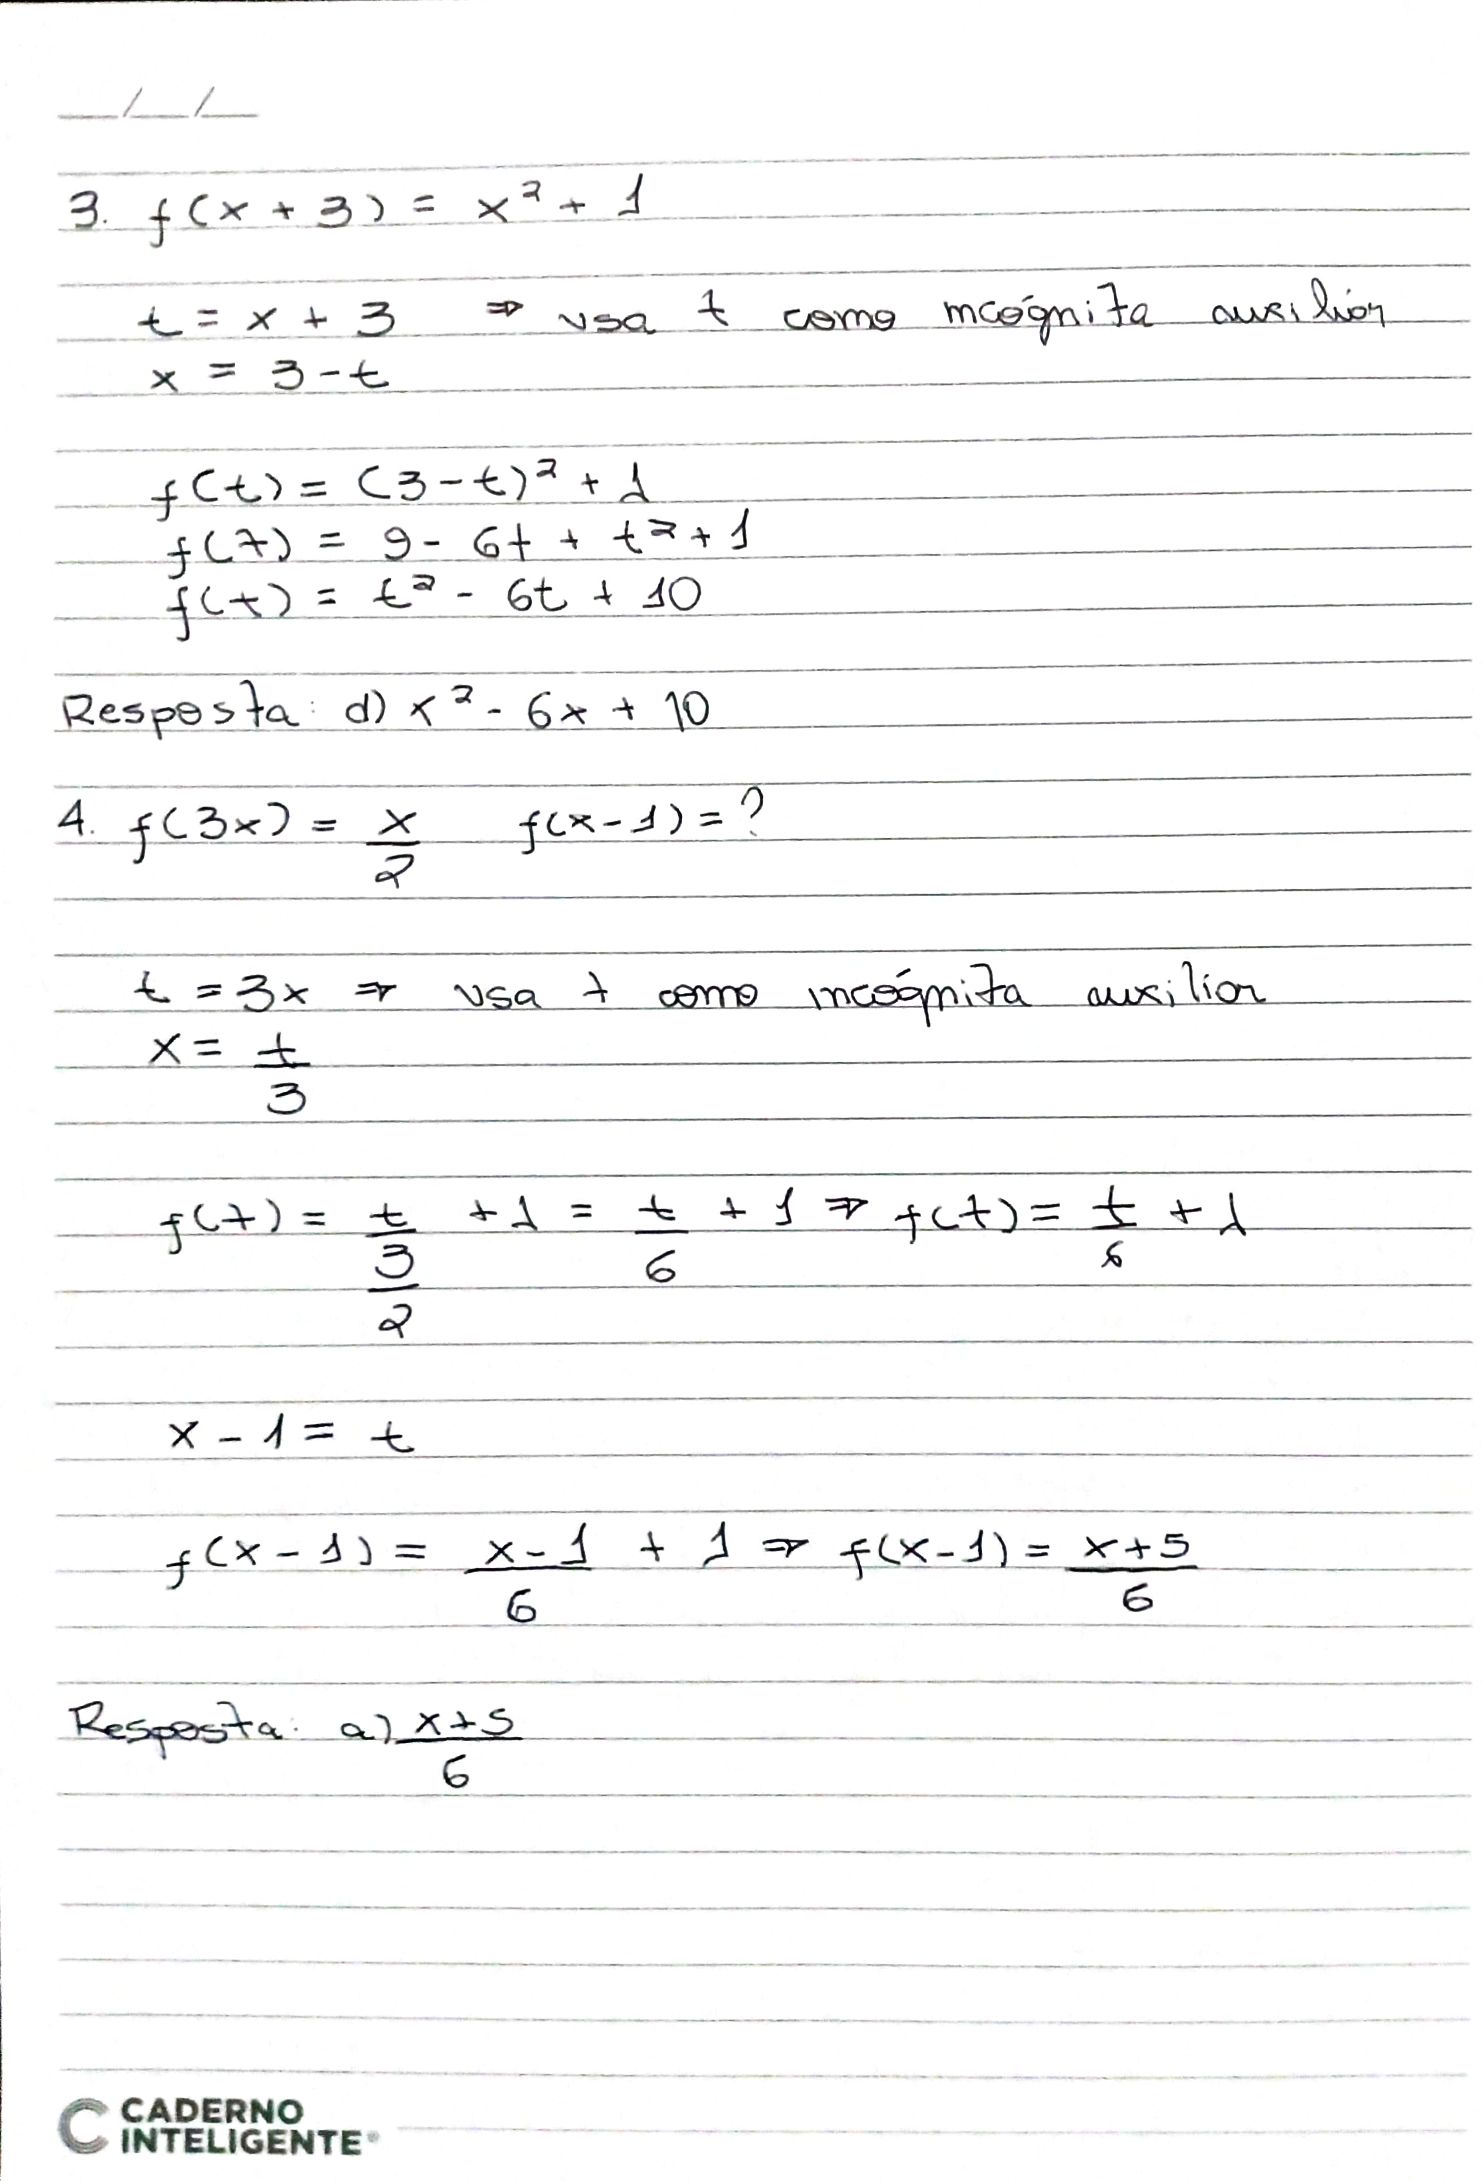 __/__/__
3. f(x + 3) = x² + 1
t = x + 3 ⇒ usa t como incógnita auxiliar
x = 3 - t
f(t) = (3 - t)² + 1
f(t) = 9 - 6t + t² + 1
f(t) = t² - 6t + 10
Resposta: d) x² - 6x + 10
4. f(3x) = x/2 f(x - 1) = ?
t = 3x ⇒ usa t como incógnita auxiliar
x = t/3
f(t) = t/3/2 + 1 = t/6 + 1 ⇒ f(t) = t/6 + 1
x - 1 = t
f(x - 1) = x - 1/6 + 1 ⇒ f(x - 1) = x + 5/6
Resposta: a) x + 5/6
CADERNO
INTELIGENTE®